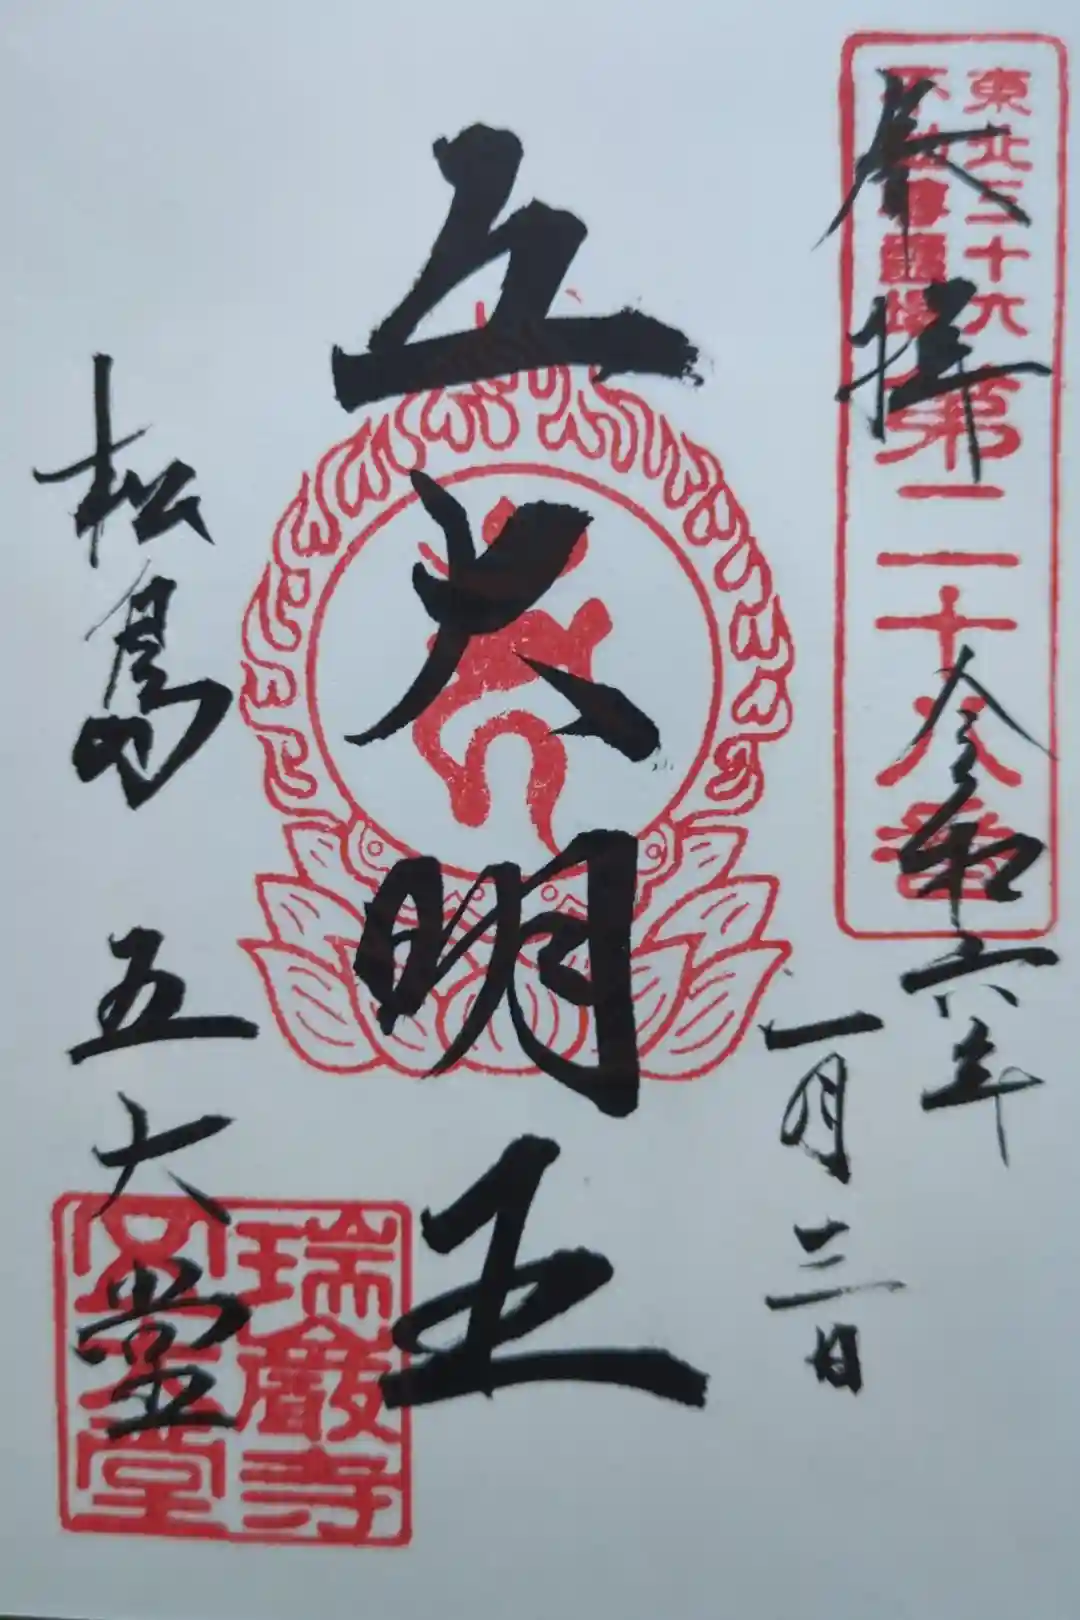 東北三十六
不動尊霊場
第二十八番
奉拝
令和六年
一月三日
五大明王
松島 五大堂
瑞巖寺
五大堂